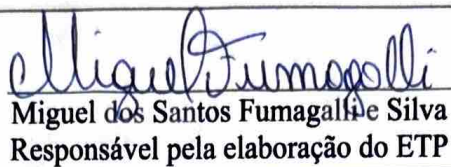 Miguel Fumagalli
Miguel dos Santos Fumagalli e Silva
Responsável pela elaboração do ETP